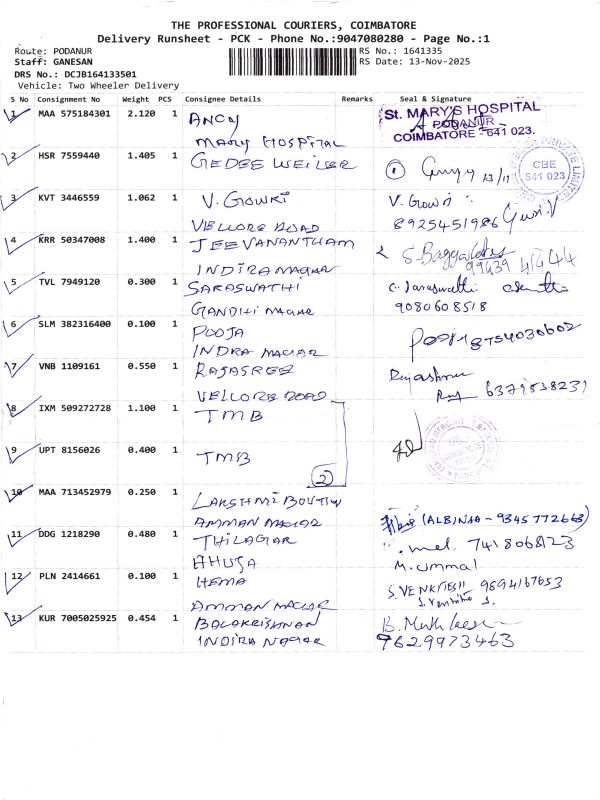 THE PROFESSIONAL COURIERS, COIMBATORE
Delivery Runsheet - PCK - Phone No.:9047080280 - Page No.:1
Route: PODANUR RS No.: 1641335
Staff: GANESAN RS Date: 13-Nov-2025
DRS No.: DCJB164133501
Vehicle: Two Wheeler Delivery
S No Consignment No Weight PCS Consignee Details Remarks Seal & Signature
1 MAA 575184301 2.120 1 ANCY St. MARY'S HOSPITAL
PODANUR
MARY HOSPITAL COIMBATORE - 641 023.
2 HSR 7559440 1.405 1 GEDEE WEILER 1 13/11 CBE 641 023
3 KVT 3446559 1.062 1 V. GOWRI V. Gowri
VELLORE ROAD 8925451986 Gowri.V
4 KRR 50347008 1.400 1 JEEVANANTHAM
INDIRA NAGAR
5 TVL 7949120 0.300 1 SARASWATHI
GANDHI NAGAR 9080608518
6 SLM 382316400 0.100 1 POOJA 8754030602
INDRA NAGAR
7 VNB 1109161 0.550 1 RAJASREE Rajashree
VELLORE ROAD
8 IXM 509272728 1.100 1 TMB
9 UPT 8156026 0.400 1 TMB
2
10 MAA 713452979 0.250 1 LAKSHMI BOUTIQ
AMMAN NAGAR (ALBINSA - 9345772663)
11 DDG 1218290 0.480 1 THILAGAR 7418068123
AHUJA M. ummal
12 PLN 2414661 0.100 1 HEMA S. VENKTESH 9894167653
AMMAN NAGAR
13 KUR 7005025925 0.454 1 BALAKRISHNAN
INDIRA NAGAR 9629973463